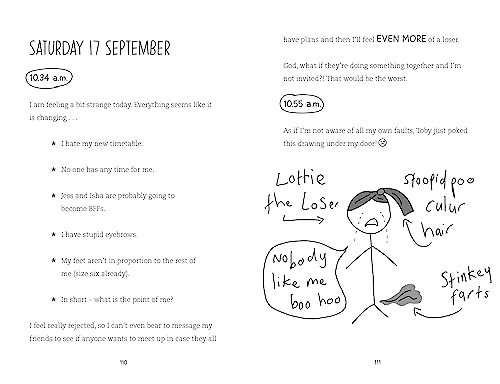 SATURDAY 17 SEPTEMBER
10.34 a.m.
I am feeling a bit strange today. Everything seems like it
is changing . . .
★ I hate my new timetable.
★ No one has any time for me.
★ Jess and Isha are probably going to
become BFFs.
★ I have stupid eyebrows.
★ My feet aren't in proportion to the rest of
me (size six already).
★ In short – what is the point of me?
I feel really rejected, so I can't even bear to message my
friends to see if anyone wants to meet up in case they all
110
have plans and then I'll feel EVEN MORE of a loser.
God, what if they're doing something together and I'm
not invited?! That would be the worst.
10.55 a.m.
As if I'm not aware of all my own faults, Toby just poked
this drawing under my door! ☹
Lottie
the Loser
Stoopid poo
culur
hair
Nobody
like me
boo hoo
Stinkey
farts
111